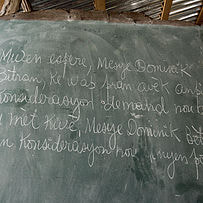 Mwen espere, Mesye Dominik
Bitran, ke w ap pran avek ansi
konsiderasyon demand nou b
u mèt kwè, Mesye Dominik
n Konsiderasyon nou